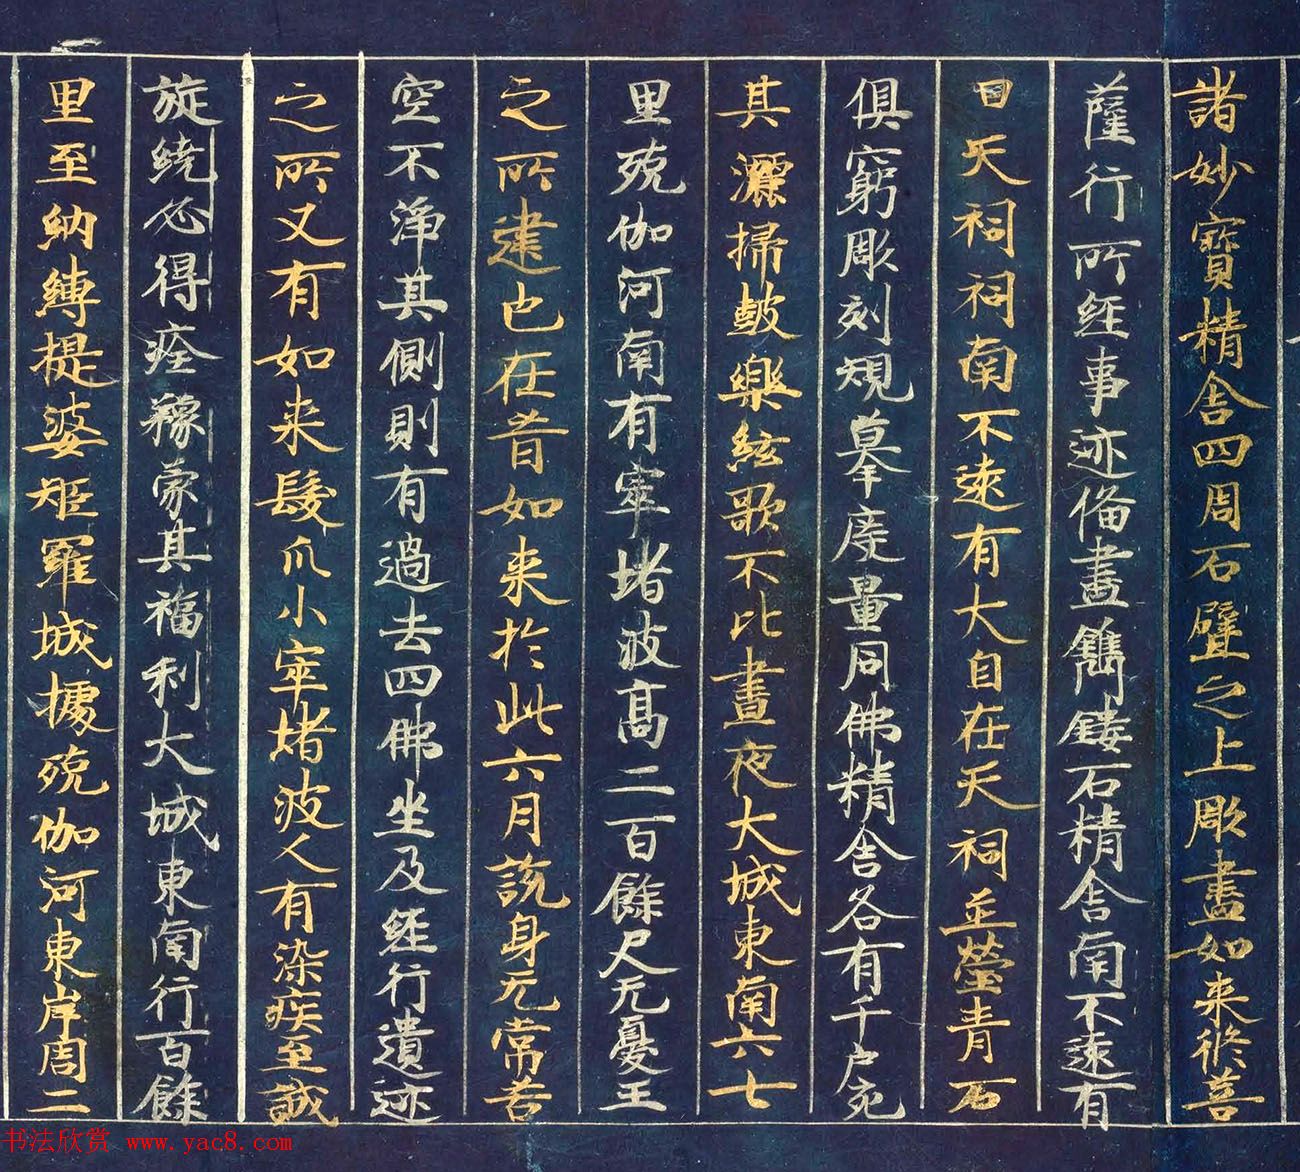 諸妙寶精舎四周石壁之上彫畫如来修菩
薩行所經事迹俻盡鐫鏤石精舎南不遠有
日天祠祠南不遠有大自在天祠並瑩青石
俱窮彫刻規摹度量同佛精舎各有千户宛
其灑掃鼓樂絃歌不比晝夜大城東南六七
里殑伽河南有窣堵波髙二百餘尺无憂王
之所建也在昔如来於此六月説身无常苦
空不淨其側則有過去四佛坐及經行遺迹
之所又有如来髮爪小窣堵波人有染疾至誠
旋繞必得痊瘳蒙其福利大城東南行百餘
里至納縛提婆矩羅城據殑伽河東岸周二
书法欣赏 www.yac8.com